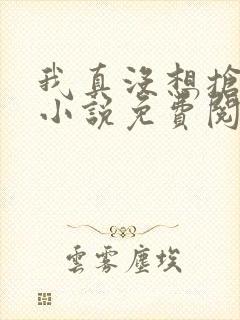 我真没想搶
小說免費閱
雲雾塵埃